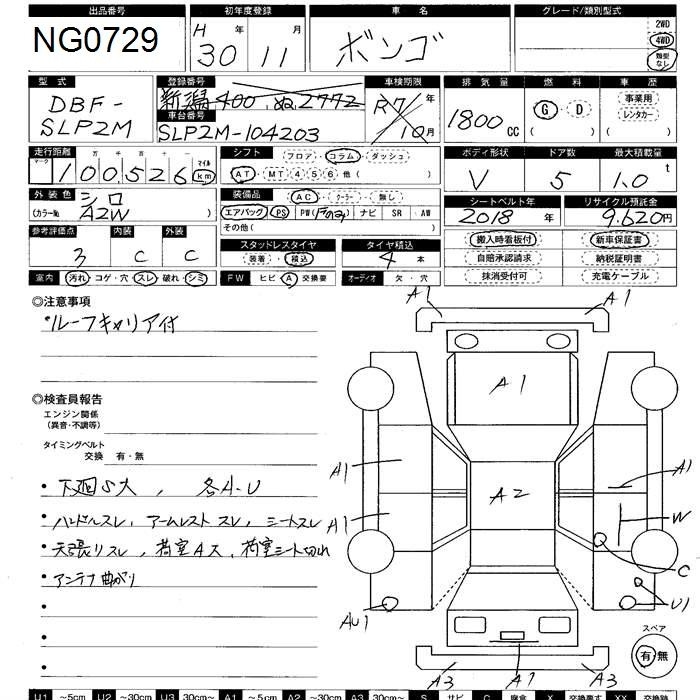 出品番号 初年度登録 車名 グレード/類別型式
NG0729 H 30 年 11 月 ボンゴ 2WD 4WD 類型なし
型式 登録番号 車検期限 排気量 燃料 車歴
DBF-SLP2M 新潟 400 ぬ 2772 R7 年 10 月 1800 CC G・D ( ) 事業用 レンタカー ( )
車台番号
SLP2M-104203
走行距離 シフト フロア・コラム・ダッシュ ボディ形状 ドア数 最大積載量
マーク 十万 万 千 百 十 一 マイル km
100526 AT・MT 4 5 6 他( ) V 5 1.0 t
外装色 シロ 装備品 AC・クーラー・無し シートベルト年 リサイクル預託金
(カラーNo. A2W ) エアバッグ PS PW ナビ SR AW 2018 年 9.620円
その他( )
参考評価点 内装 外装 スタッドレスタイヤ タイヤ積込 搬入時看板付 新車保証書
3 C C 装着・積込 4 本 自賠承認請求 納税証明書
室内 汚れ コゲ・穴 スレ 破れ シミ FW ヒビ A 交換要 オーディオ 欠・穴 抹消受付可 充電ケーブル
◎注意事項
・ルーフキャリア付
◎検査員報告
エンジン関係
(異音・不調等)
タイミングベルト
交換 有・無
・下廻りS大, 各A・U
・ハンドルスレ, アームレストスレ, シートスレ
・天張リスレ, 荷室A大, 荷室シート切れ
・アンテナ曲がり
A1 A1
A1
A1 A1
A2
A1 W
C
AU1 U1
スペア
有・無
A3 A1 A3
U1 ~5cm U2 ~30cm U3 30cm~ A1 ~5cm A2 ~30cm A3 30cm~ S サビ C 腐食 X 交換要す XX 交換跡